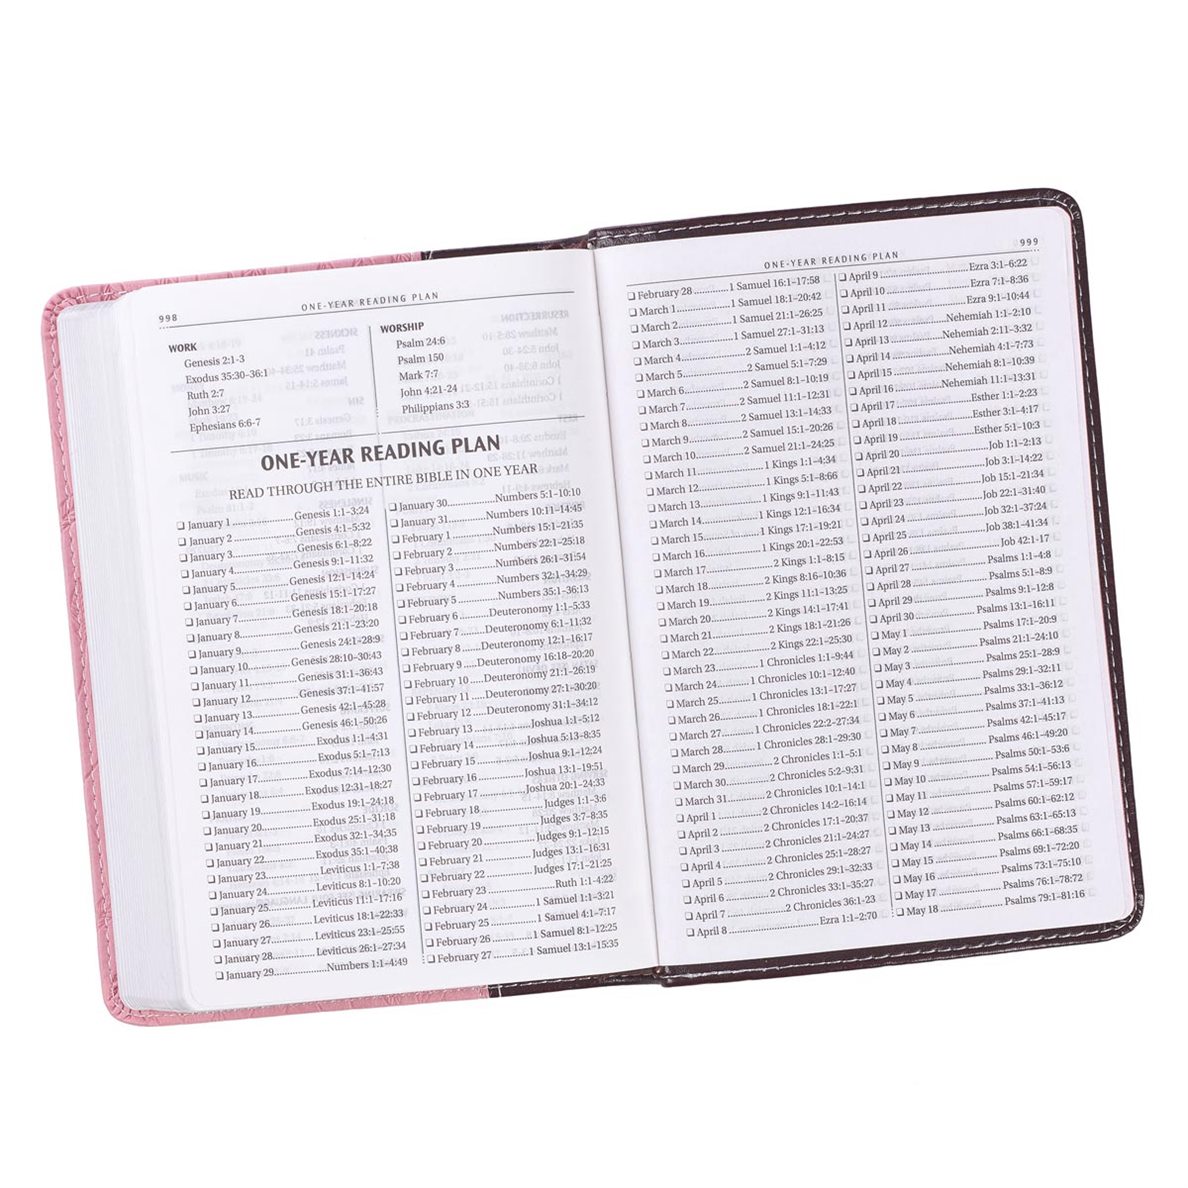 998
ONE-YEAR READING PLAN
WORK
Genesis 2:1-3
Exodus 35:30–36:1
Ruth 2:7
John 3:27
Ephesians 6:6-7
WORSHIP
Psalm 24:6
Psalm 150
Mark 7:7
John 4:21-24
Philippians 3:3
ONE-YEAR READING PLAN
READ THROUGH THE ENTIRE BIBLE IN ONE YEAR
❑ January 1 ........ Genesis 1:1–3:24
❑ January 2 ........ Genesis 4:1–5:32
❑ January 3 ........ Genesis 6:1–8:22
❑ January 4 ........ Genesis 9:1–11:32
❑ January 5 ........ Genesis 12:1–14:24
❑ January 6 ........ Genesis 15:1–17:27
❑ January 7 ........ Genesis 18:1–20:18
❑ January 8 ........ Genesis 21:1–23:20
❑ January 9 ........ Genesis 24:1–28:9
❑ January 10 ........ Genesis 28:10–30:43
❑ January 11 ........ Genesis 31:1–36:43
❑ January 12 ........ Genesis 37:1–41:57
❑ January 13 ........ Genesis 42:1–45:28
❑ January 14 ........ Genesis 46:1–50:26
❑ January 15 ........ Exodus 1:1–4:31
❑ January 16 ........ Exodus 5:1–7:13
❑ January 17 ........ Exodus 7:14–12:30
❑ January 18 ........ Exodus 12:31–18:27
❑ January 19 ........ Exodus 19:1–24:18
❑ January 20 ........ Exodus 25:1–31:18
❑ January 21 ........ Exodus 32:1–34:35
❑ January 22 ........ Exodus 35:1–40:38
❑ January 23 ........ Leviticus 1:1–7:38
❑ January 24 ........ Leviticus 8:1–10:20
❑ January 25 ........ Leviticus 11:1–17:16
❑ January 26 ........ Leviticus 18:1–22:33
❑ January 27 ........ Leviticus 23:1–25:55
❑ January 28 ........ Leviticus 26:1–27:34
❑ January 29 ........ Numbers 1:1–4:49
❑ January 30 ........ Numbers 5:1–10:10
❑ January 31 ........ Numbers 10:11–14:45
❑ February 1 ........ Numbers 15:1–21:35
❑ February 2 ........ Numbers 22:1–25:18
❑ February 3 ........ Numbers 26:1–31:54
❑ February 4 ........ Numbers 32:1–34:29
❑ February 5 ........ Numbers 35:1–36:13
❑ February 6 ........ Deuteronomy 1:1–5:33
❑ February 7 ........ Deuteronomy 6:1–11:32
❑ February 8 ........ Deuteronomy 12:1–16:17
❑ February 9 ........ Deuteronomy 16:18–20:20
❑ February 10 ........ Deuteronomy 21:1–26:19
❑ February 11 ........ Deuteronomy 27:1–30:20
❑ February 12 ........ Deuteronomy 31:1–34:12
❑ February 13 ........ Joshua 1:1–5:12
❑ February 14 ........ Joshua 5:13–8:35
❑ February 15 ........ Joshua 9:1–12:24
❑ February 16 ........ Joshua 13:1–19:51
❑ February 17 ........ Joshua 20:1–24:33
❑ February 18 ........ Judges 1:1–3:6
❑ February 19 ........ Judges 3:7–8:35
❑ February 20 ........ Judges 9:1–12:15
❑ February 21 ........ Judges 13:1–16:31
❑ February 22 ........ Judges 17:1–21:25
❑ February 23 ........ Ruth 1:1–4:22
❑ February 24 ........ 1 Samuel 1:1–3:21
❑ February 25 ........ 1 Samuel 4:1–7:17
❑ February 26 ........ 1 Samuel 8:1–12:25
❑ February 27 ........ 1 Samuel 13:1–15:35
ONE-YEAR READING PLAN
999
❑ February 28 ........ 1 Samuel 16:1–17:58
❑ March 1 ........ 1 Samuel 18:1–20:42
❑ March 2 ........ 1 Samuel 21:1–26:25
❑ March 3 ........ 1 Samuel 27:1–31:13
❑ March 4 ........ 2 Samuel 1:1–4:12
❑ March 5 ........ 2 Samuel 5:1–7:29
❑ March 6 ........ 2 Samuel 8:1–10:19
❑ March 7 ........ 2 Samuel 11:1–12:31
❑ March 8 ........ 2 Samuel 13:1–14:33
❑ March 9 ........ 2 Samuel 15:1–20:26
❑ March 10 ........ 2 Samuel 21:1–24:25
❑ March 11 ........ 1 Kings 1:1–4:34
❑ March 12 ........ 1 Kings 5:1–8:66
❑ March 13 ........ 1 Kings 9:1–11:43
❑ March 14 ........ 1 Kings 12:1–16:34
❑ March 15 ........ 1 Kings 17:1–19:21
❑ March 16 ........ 1 Kings 20:1–22:53
❑ March 17 ........ 2 Kings 1:1–8:15
❑ March 18 ........ 2 Kings 8:16–10:36
❑ March 19 ........ 2 Kings 11:1–13:25
❑ March 20 ........ 2 Kings 14:1–17:41
❑ March 21 ........ 2 Kings 18:1–21:26
❑ March 22 ........ 2 Kings 22:1–25:30
❑ March 23 ........ 1 Chronicles 1:1–9:44
❑ March 24 ........ 1 Chronicles 10:1–12:40
❑ March 25 ........ 1 Chronicles 13:1–17:27
❑ March 26 ........ 1 Chronicles 18:1–22:1
❑ March 27 ........ 1 Chronicles 22:2–27:34
❑ March 28 ........ 1 Chronicles 28:1–29:30
❑ March 29 ........ 2 Chronicles 1:1–5:1
❑ March 30 ........ 2 Chronicles 5:2–9:31
❑ March 31 ........ 2 Chronicles 10:1–14:1
❑ April 1 ........ 2 Chronicles 14:2–16:14
❑ April 2 ........ 2 Chronicles 17:1–20:37
❑ April 3 ........ 2 Chronicles 21:1–24:27
❑ April 4 ........ 2 Chronicles 25:1–28:27
❑ April 5 ........ 2 Chronicles 29:1–32:33
❑ April 6 ........ 2 Chronicles 33:1–35:27
❑ April 7 ........ 2 Chronicles 36:1-23
❑ April 8 ........ Ezra 1:1–2:70
❑ April 9 ........ Ezra 3:1–6:22
❑ April 10 ........ Ezra 7:1–8:36
❑ April 11 ........ Ezra 9:1–10:44
❑ April 12 ........ Nehemiah 1:1–2:10
❑ April 13 ........ Nehemiah 2:11–3:32
❑ April 14 ........ Nehemiah 4:1–7:73
❑ April 15 ........ Nehemiah 8:1–10:39
❑ April 16 ........ Nehemiah 11:1–13:31
❑ April 17 ........ Esther 1:1–2:23
❑ April 18 ........ Esther 3:1–4:17
❑ April 19 ........ Esther 5:1–10:3
❑ April 20 ........ Job 1:1–2:13
❑ April 21 ........ Job 3:1–14:22
❑ April 22 ........ Job 15:1–21:34
❑ April 23 ........ Job 22:1–31:40
❑ April 24 ........ Job 32:1–37:24
❑ April 25 ........ Job 38:1–41:34
❑ April 26 ........ Job 42:1-17
❑ April 27 ........ Psalms 1:1–4:8
❑ April 28 ........ Psalms 5:1–8:9
❑ April 29 ........ Psalms 9:1–12:8
❑ April 30 ........ Psalms 13:1–16:11
❑ May 1 ........ Psalms 17:1–20:9
❑ May 2 ........ Psalms 21:1–24:10
❑ May 3 ........ Psalms 25:1–28:9
❑ May 4 ........ Psalms 29:1–32:11
❑ May 5 ........ Psalms 33:1–36:12
❑ May 6 ........ Psalms 37:1–41:13
❑ May 7 ........ Psalms 42:1–45:17
❑ May 8 ........ Psalms 46:1–49:20
❑ May 9 ........ Psalms 50:1–53:6
❑ May 10 ........ Psalms 54:1–56:13
❑ May 11 ........ Psalms 57:1–59:17
❑ May 12 ........ Psalms 60:1–62:12
❑ May 13 ........ Psalms 63:1–65:13
❑ May 14 ........ Psalms 66:1–68:35
❑ May 15 ........ Psalms 69:1–72:20
❑ May 16 ........ Psalms 73:1–75:10
❑ May 17 ........ Psalms 76:1–78:72
❑ May 18 ........ Psalms 79:1–81:16